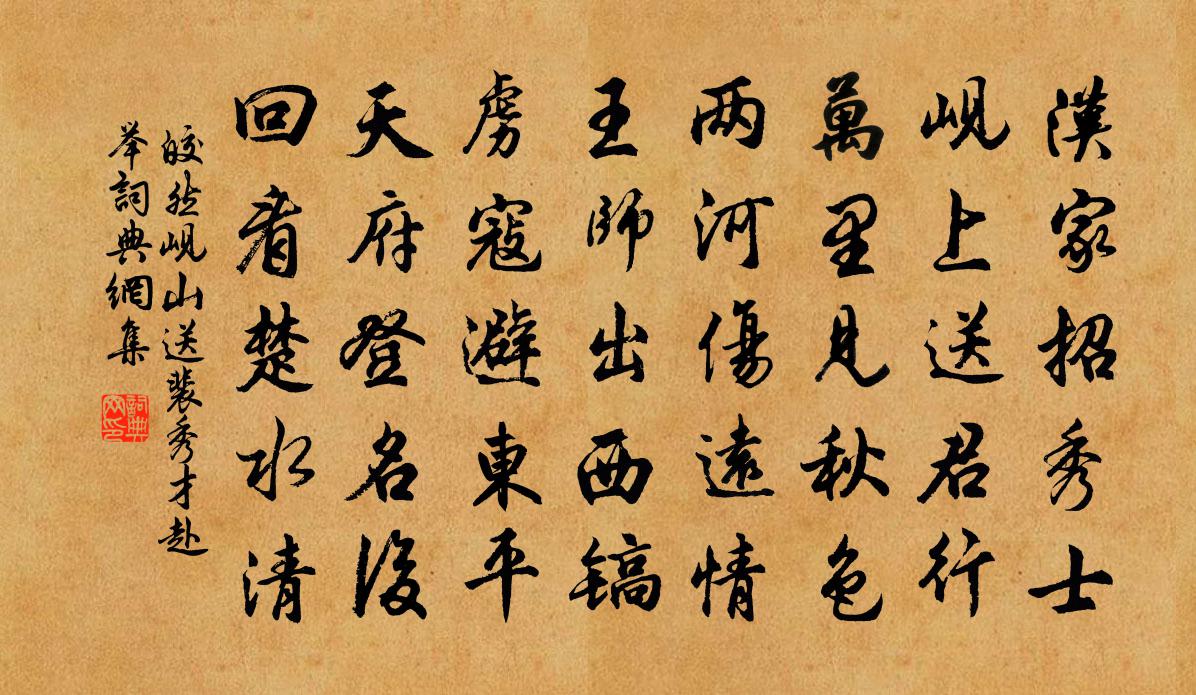 漢家招秀士
峴上送君行
萬里見秋色
两河傷遠情
王師出西镐
虜寇避東平
天府登名後
回看楚水清
皎然峴山送裴秀才赴
举詞典網集
詞典
网印